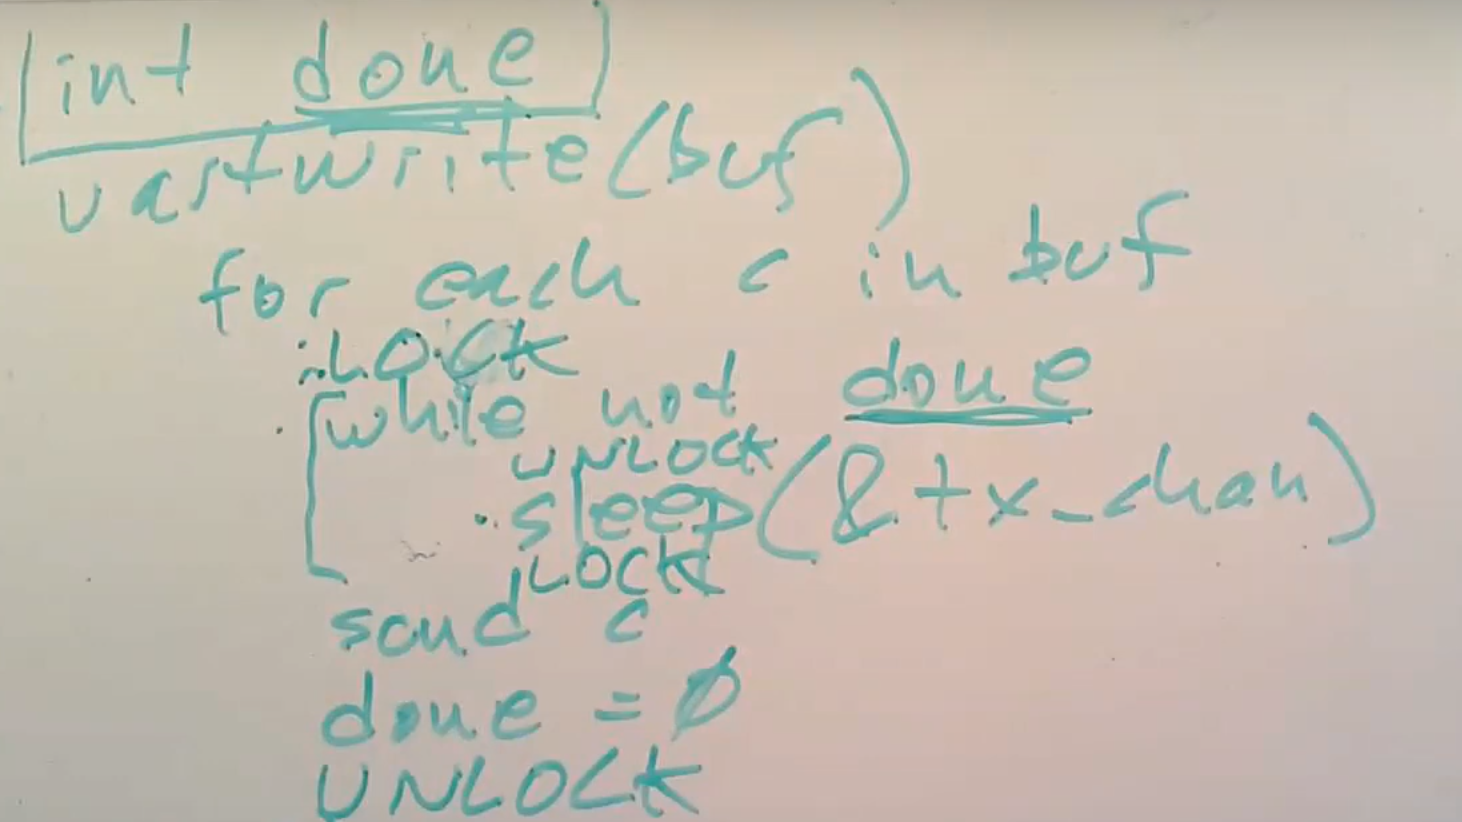 int done
uartwrite(buf)
for each c in buf
LOCK
while not done
UNLOCK
sleep(&tx_chan)
LOCK
send c
done = 0
UNLOCK